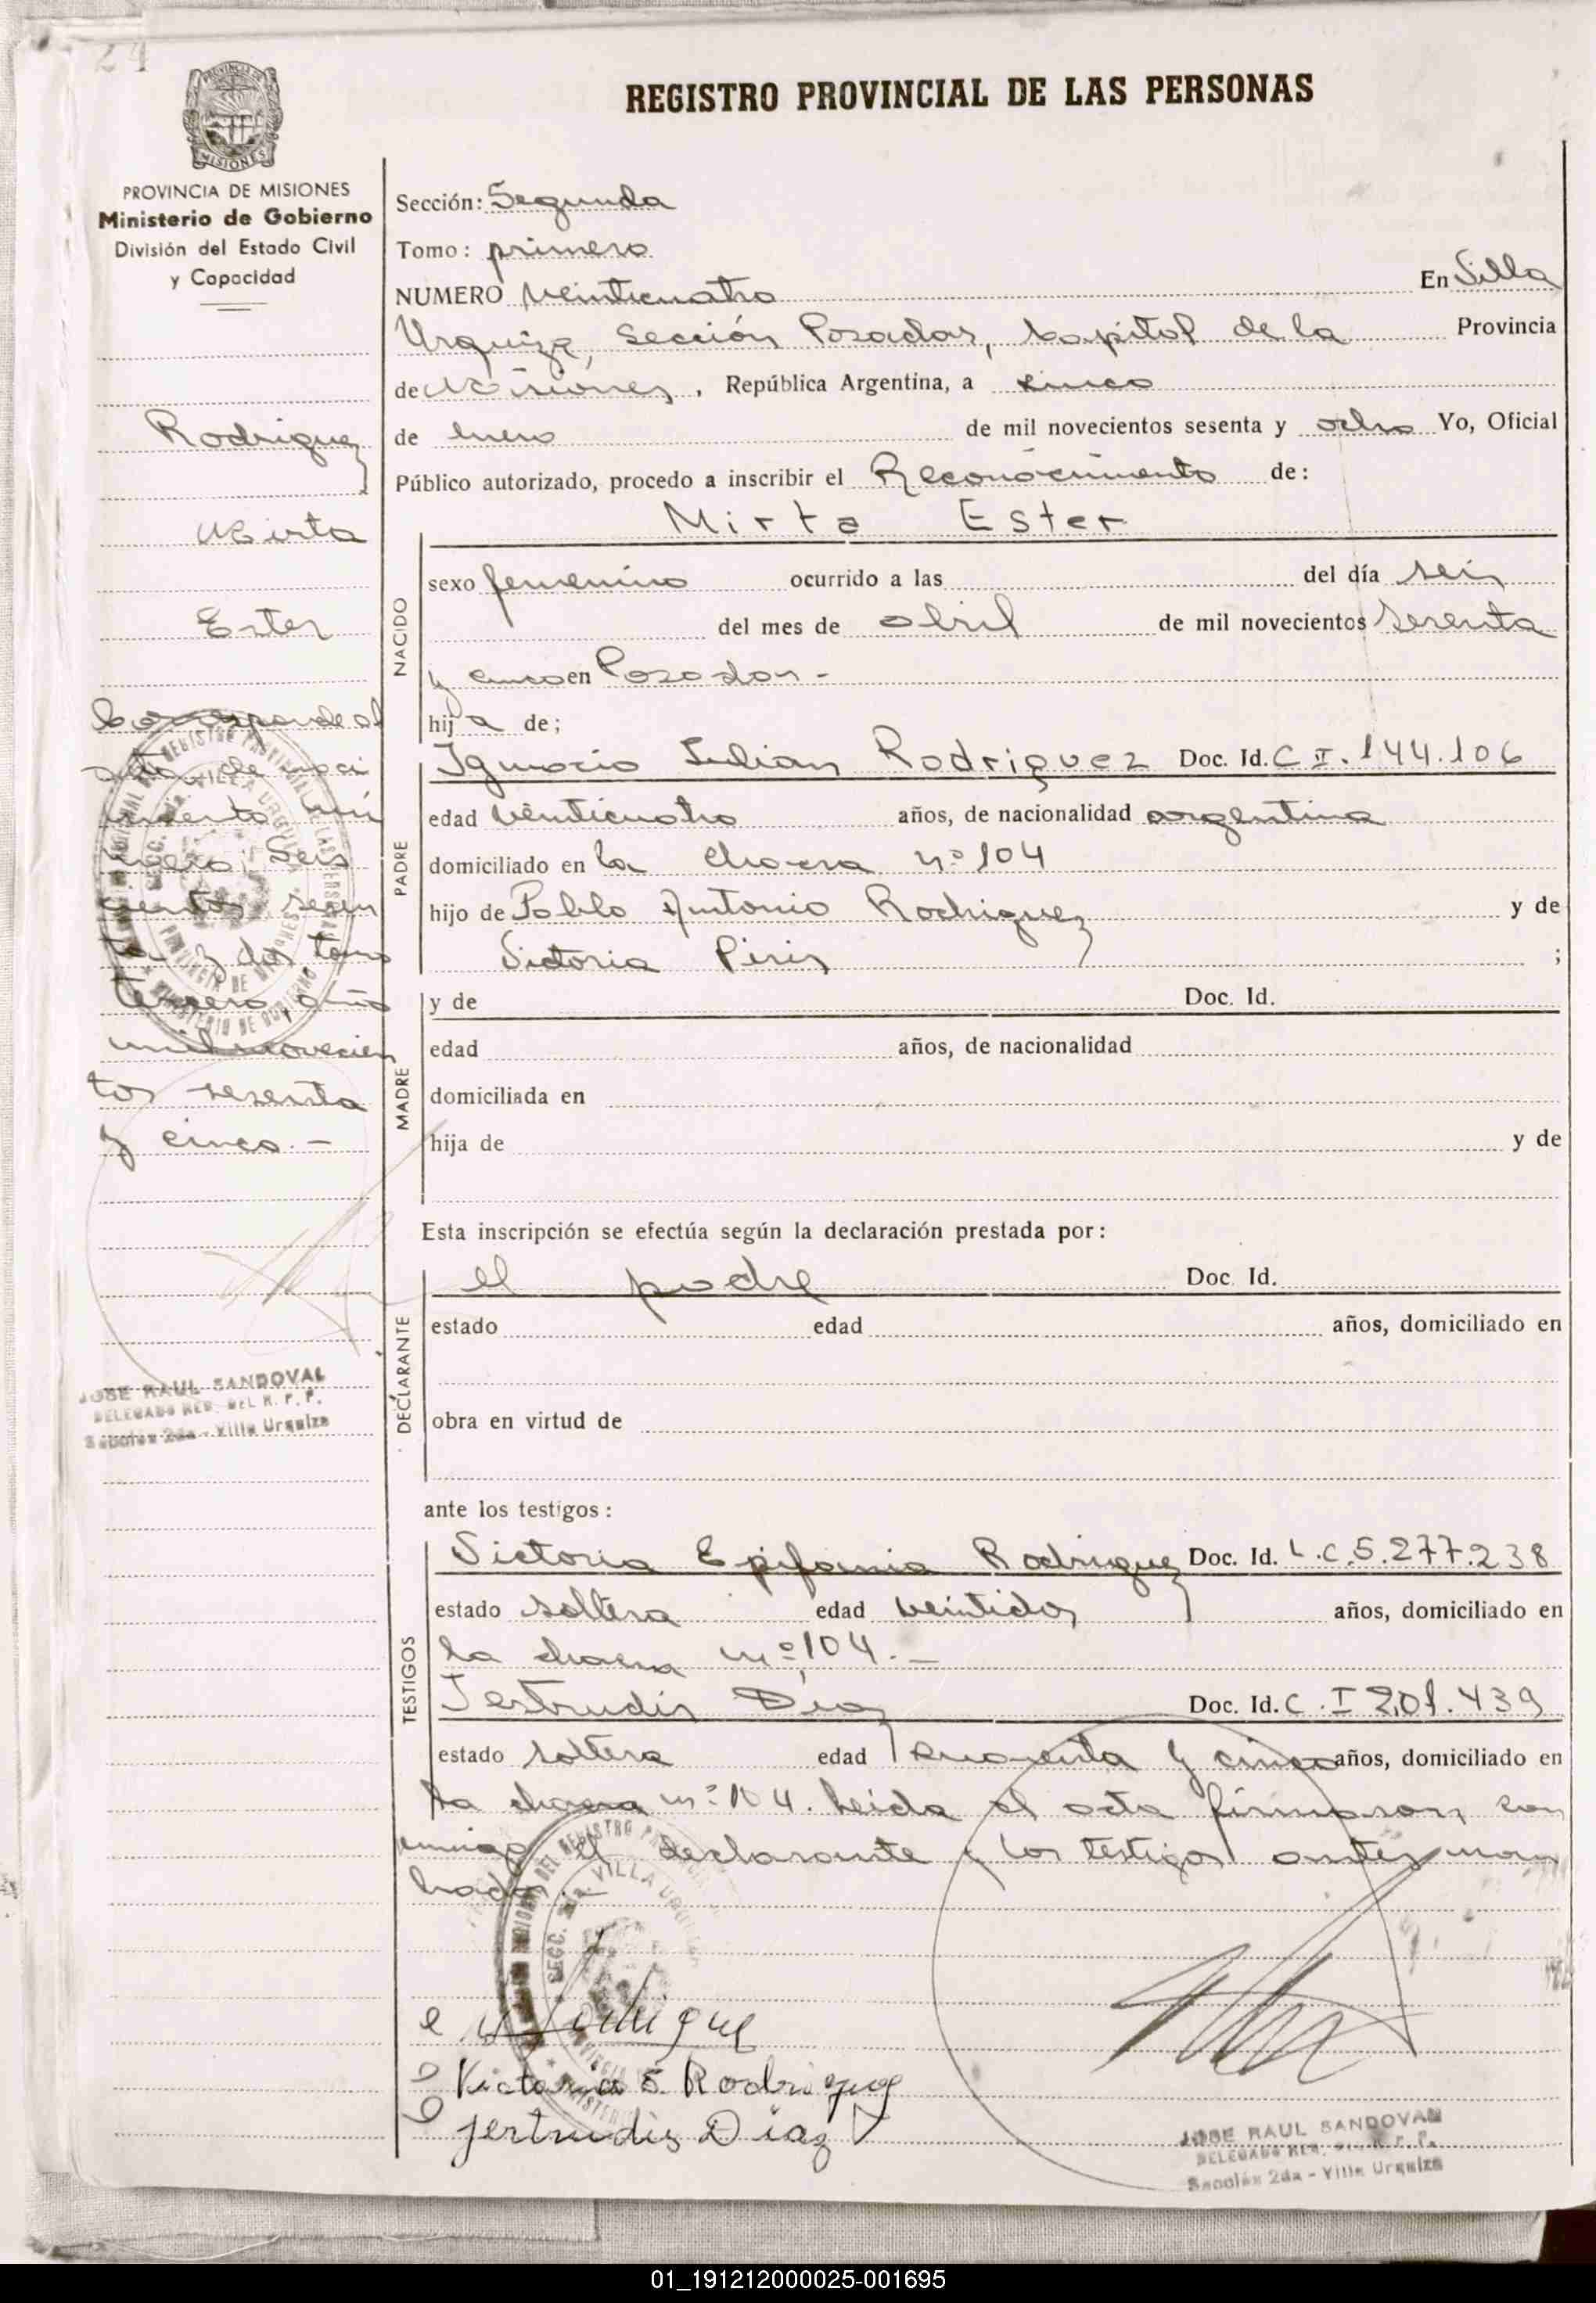 24
REGISTRO PROVINCIAL DE LAS PERSONAS
PROVINCIA DE MISIONES
Ministerio de Gobierno
División del Estado Civil
y Capacidad
Rodriguez
Mirta
Ester
Corresponde al
acta de naci
miento nú
mero Seis
cientos sesen
ta y dos tomo
tercero, año
mil novecien
tos sesenta
y cinco. -
JOSE RAUL SANDOVAL
DELEGADO REG. DEL R. P. P.
Sección 2da - Villa Urquiza
Sección: Segunda
Tomo: primero
NUMERO Veinticuatro En Villa
Urquiza, Sección Posadas, Capital de la Provincia
de Misiones, República Argentina, a cinco
de Enero de mil novecientos sesenta y ocho Yo, Oficial
Público autorizado, procedo a inscribir el Reconocimiento de:
Mirta Ester
NACIDO
sexo femenino ocurrido a las del día seis
del mes de abril de mil novecientos Sesenta
y cinco en Posadas -
hija de;
PADRE
Ignacio Julian Rodriguez Doc. Id. C I. 144.106
edad Veinticuatro años, de nacionalidad argentina
domiciliado en la chacra nº 104
hijo de Pablo Antonio Rodriguez y de
Victoria Piris ;
MADRE
y de Doc. Id.
edad años, de nacionalidad
domiciliada en
hija de y de
Esta inscripción se efectúa según la declaración prestada por:
DECLARANTE
el padre Doc. Id.
estado edad años, domiciliado en
obra en virtud de
ante los testigos:
TESTIGOS
Victoria Epifania Rodriguez Doc. Id. L.C.5.277.238
estado soltera edad veintidos años, domiciliado en
la chacra nº 104. -
Jertrudis Diaz Doc. Id. C. I 201.439
estado soltera edad cuarenta y cinco años, domiciliado en
la chacra nº 104. Leida el acta firmaron con
migo el declarante y los testigos antes men
Rodriguez
Victoria E. Rodriguez
Jertrudis Diaz
JOSE RAUL SANDOVAL
DELEGADO REG. DEL R. P. P.
Sección 2da - Villa Urquiza
01_191212000025-001695